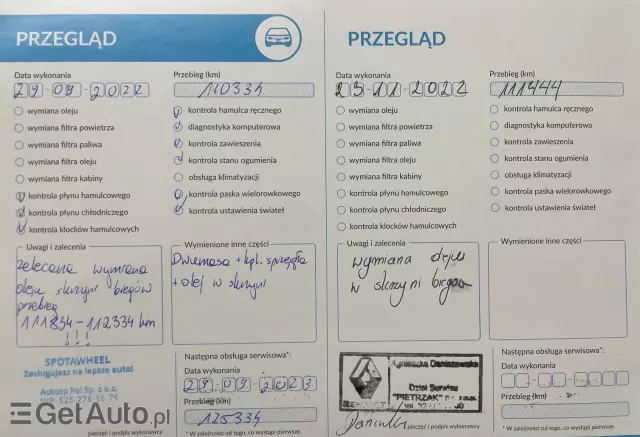 PRZEGLĄD
Data wykonania
29-09-2022
Przebieg (km)
110334
wymiana oleju
wymiana filtra powietrza
wymiana filtra paliwa
wymiana filtra oleju
wymiana filtra kabiny
kontrola płynu hamulcowego
kontrola płynu chłodniczego
kontrola klocków hamulcowych
kontrola hamulca ręcznego
diagnostyka komputerowa
kontrola zawieszenia
kontrola stanu ogumienia
obsługa klimatyzacji
kontrola paska wielorowkowego
kontrola ustawienia świateł
Uwagi i zalecenia
zalecana wymiana
oleju skrzyni biegów
przebieg
111834-112334 km
!!!
Wymienione inne części
Dwumasa + kpl. sprzęgła
+ olej w skrzyni
SPOTAWHEEL
Zasługujesz na lepsze auto!
Autosp Pol Sp. z o.o.
NIP: 525-278-95-76
Następna obsługa serwisowa*:
Data wykonania
29-09-2023
Przebieg (km)
125334
pieczęć i podpis wykonawcy
* W zależności od tego, co wystąpi pierwsze.
PRZEGLĄD
Data wykonania
25-11-2022
Przebieg (km)
111444
wymiana oleju
wymiana filtra powietrza
wymiana filtra paliwa
wymiana filtra oleju
wymiana filtra kabiny
kontrola płynu hamulcowego
kontrola płynu chłodniczego
kontrola klocków hamulcowych
kontrola hamulca ręcznego
diagnostyka komputerowa
kontrola zawieszenia
kontrola stanu ogumienia
obsługa klimatyzacji
kontrola paska wielorowkowego
kontrola ustawienia świateł
Uwagi i zalecenia
wymiana oleju
w skrzyni biegów
Wymienione inne części
Agnieszka Daniszewska
Dział Serwisu
"PIETRZAK"
Następna obsługa serwisowa*:
Data wykonania
Przebieg (km)
pieczęć i podpis wykonawcy
* W zależności od tego, co wystąpi pierwsze.
GetAuto.pl